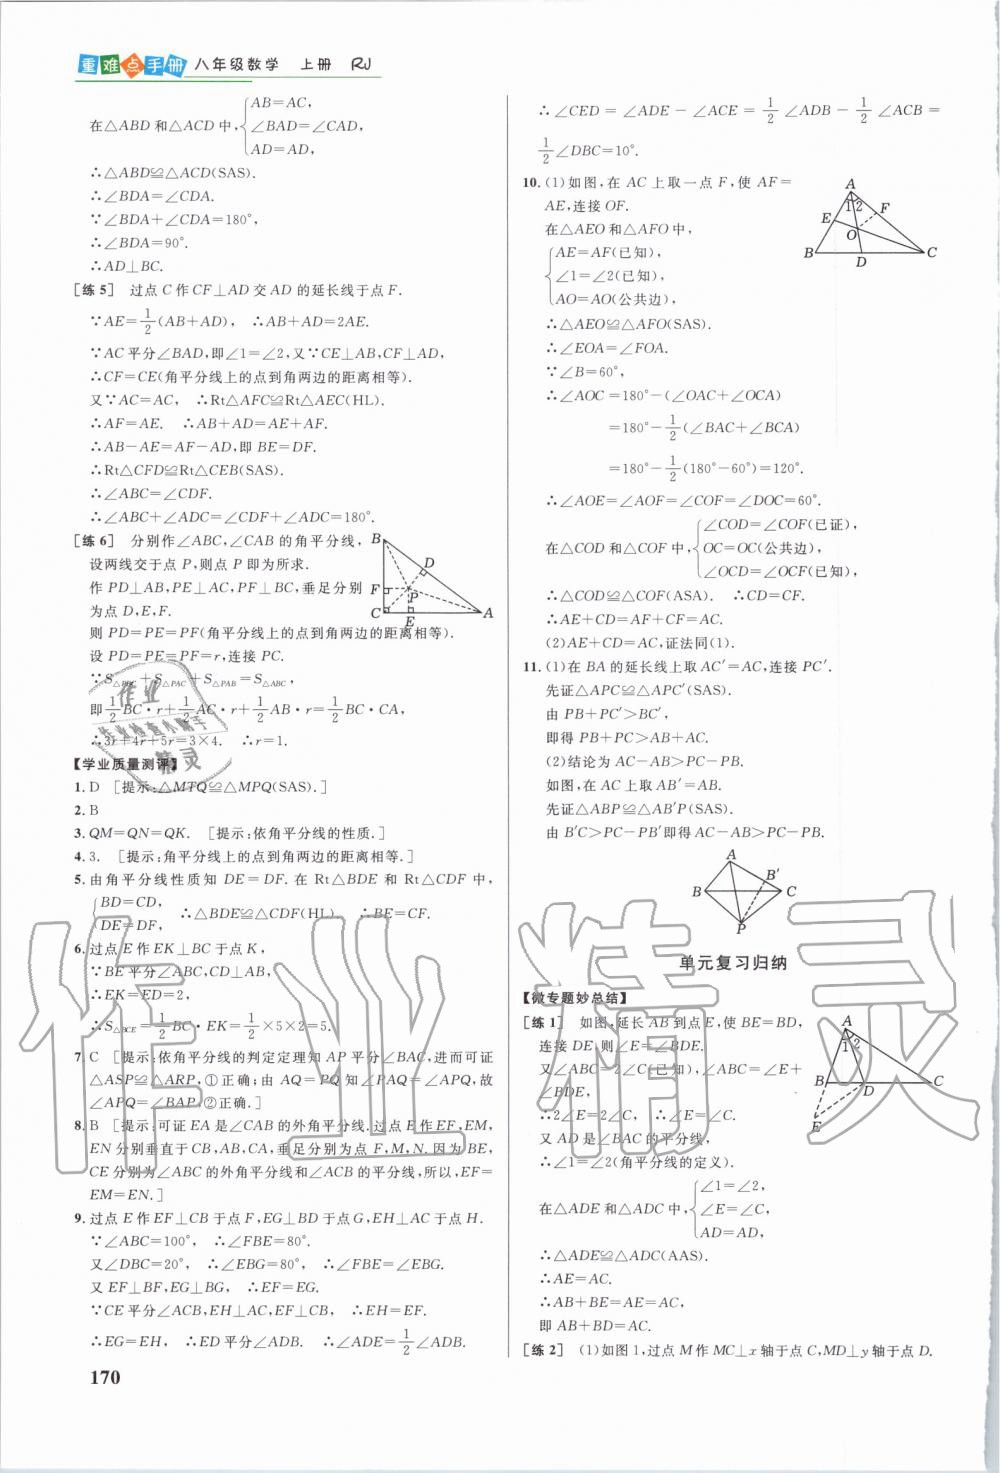 重难点手册 八年级数学 上册 RJ
在△ABD和△ACD中,{AB=AC,
∠BAD=∠CAD,
AD=AD,
∴△ABD≌△ACD(SAS).
∴∠BDA=∠CDA.
∵∠BDA+∠CDA=180°,
∴∠BDA=90°.
∴AD⊥BC.
[练5] 过点C作CF⊥AD交AD的延长线于点F.
∵AE=1/2(AB+AD), ∴AB+AD=2AE.
∵AC平分∠BAD,即∠1=∠2,又∵CE⊥AB,CF⊥AD,
∴CF=CE(角平分线上的点到角两边的距离相等).
又∵AC=AC, ∴Rt△AFC≌Rt△AEC(HL).
∴AF=AE. ∴AB+AD=AE+AF.
∴AB-AE=AF-AD,即BE=DF.
∴Rt△CFD≌Rt△CEB(SAS).
∴∠ABC=∠CDF.
∴∠ABC+∠ADC=∠CDF+∠ADC=180°.
[练6] 分别作∠ABC,∠CAB的角平分线,
设两线交于点P,则点P即为所求.
作PD⊥AB,PE⊥AC,PF⊥BC,垂足分别
为点D,E,F.
则PD=PE=PF(角平分线上的点到角两边的距离相等).
设PD=PE=PF=r,连接PC.
∵S△PBC+S△PAC+S△PAB=S△ABC,
即1/2BC·r+1/2AC·r+1/2AB·r=1/2BC·CA,
∴3r+4r+5r=3×4. ∴r=1.
B D F P C E A
【学业质量测评】
1. D [提示:△MTQ≌△MPQ(SAS).]
2. B
3. QM=QN=QK. [提示:依角平分线的性质.]
4. 3. [提示:角平分线上的点到角两边的距离相等.]
5. 由角平分线性质知DE=DF.在Rt△BDE和Rt△CDF中,
{BD=CD,
DE=DF, ∴△BDE≌△CDF(HL) ∴BE=CF.
6. 过点E作EK⊥BC于点K,
∵BE平分∠ABC,CD⊥AB,
∴EK=ED=2,
∴S△BCE=1/2BC·EK=1/2×5×2=5.
7. C [提示:依角平分线的判定定理知AP平分∠BAC,进而可证
△ASP≌△ARP,①正确;由AQ=PQ知∠PAQ=∠APQ,故
∠APQ=∠BAP,②正确.]
8. B [提示:可证EA是∠CAB的外角平分线.过点E作EF,EM,
EN分别垂直于CB,AB,CA,垂足分别为点F,M,N.因为BE,
CE分别是∠ABC的外角平分线和∠ACB的平分线,所以,EF=
EM=EN.]
9. 过点E作EF⊥CB于点F,EG⊥BD于点G,EH⊥AC于点H.
∵∠ABC=100°, ∴∠FBE=80°.
又∠DBC=20°, ∴∠EBG=80°. ∴∠FBE=∠EBG.
又EF⊥BF,EG⊥BG, ∴EF=EG.
∵CE平分∠ACB,EH⊥AC,EF⊥CB, ∴EH=EF.
∴EG=EH, ∴ED平分∠ADB. ∴∠ADE=1/2∠ADB.
170
∴∠CED=∠ADE-∠ACE=1/2∠ADB-1/2∠ACB=
1/2∠DBC=10°.
10. (1)如图,在AC上取一点F,使AF=
AE,连接OF.
在△AEO和△AFO中,
{AE=AF(已知),
∠1=∠2(已知),
AO=AO(公共边),
∴△AEO≌△AFO(SAS).
∴∠EOA=∠FOA.
∵∠B=60°,
∴∠AOC=180°-(∠OAC+∠OCA)
=180°-1/2(∠BAC+∠BCA)
=180°-1/2(180°-60°)=120°.
∴∠AOE=∠AOF=∠COF=∠DOC=60°.
在△COD和△COF中,{∠COD=∠COF(已证),
OC=OC(公共边),
∠OCD=∠OCF(已知),
∴△COD≌△COF(ASA). ∴CD=CF.
∴AE+CD=AF+CF=AC.
(2)AE+CD=AC,证法同(1).
A 1 2 F E O B D C
11. (1)在BA的延长线上取AC′=AC,连接PC′.
先证△APC≌△APC′(SAS).
由PB+PC′>BC′,
即得PB+PC>AB+AC.
(2)结论为AC-AB>PC-PB.
如图,在AC上取AB′=AB.
先证△ABP≌△AB′P(SAS).
由B′C>PC-PB′即得AC-AB>PC-PB.
A B′ B C P
单元复习归纳
【微专题妙总结】
[练1] 如图,延长AB到点E,使BE=BD,
连接DE,则∠E=∠BDE.
又∠ABC=2∠C(已知),∠ABC=∠E+
∠BDE,
∴2∠E=2∠C, ∴∠E=∠C.
又AD是∠BAC的平分线,
∴∠1=∠2(角平分线的定义).
在△ADE和△ADC中,{∠1=∠2,
∠E=∠C,
AD=AD,
∴△ADE≌△ADC(AAS).
∴AE=AC.
∴AB+BE=AE=AC,
即AB+BD=AC.
A 1 2 B D C E
[练2] (1)如图1,过点M作MC⊥x轴于点C,MD⊥y轴于点D.
作业精灵
作业
作业检查小助手
精灵